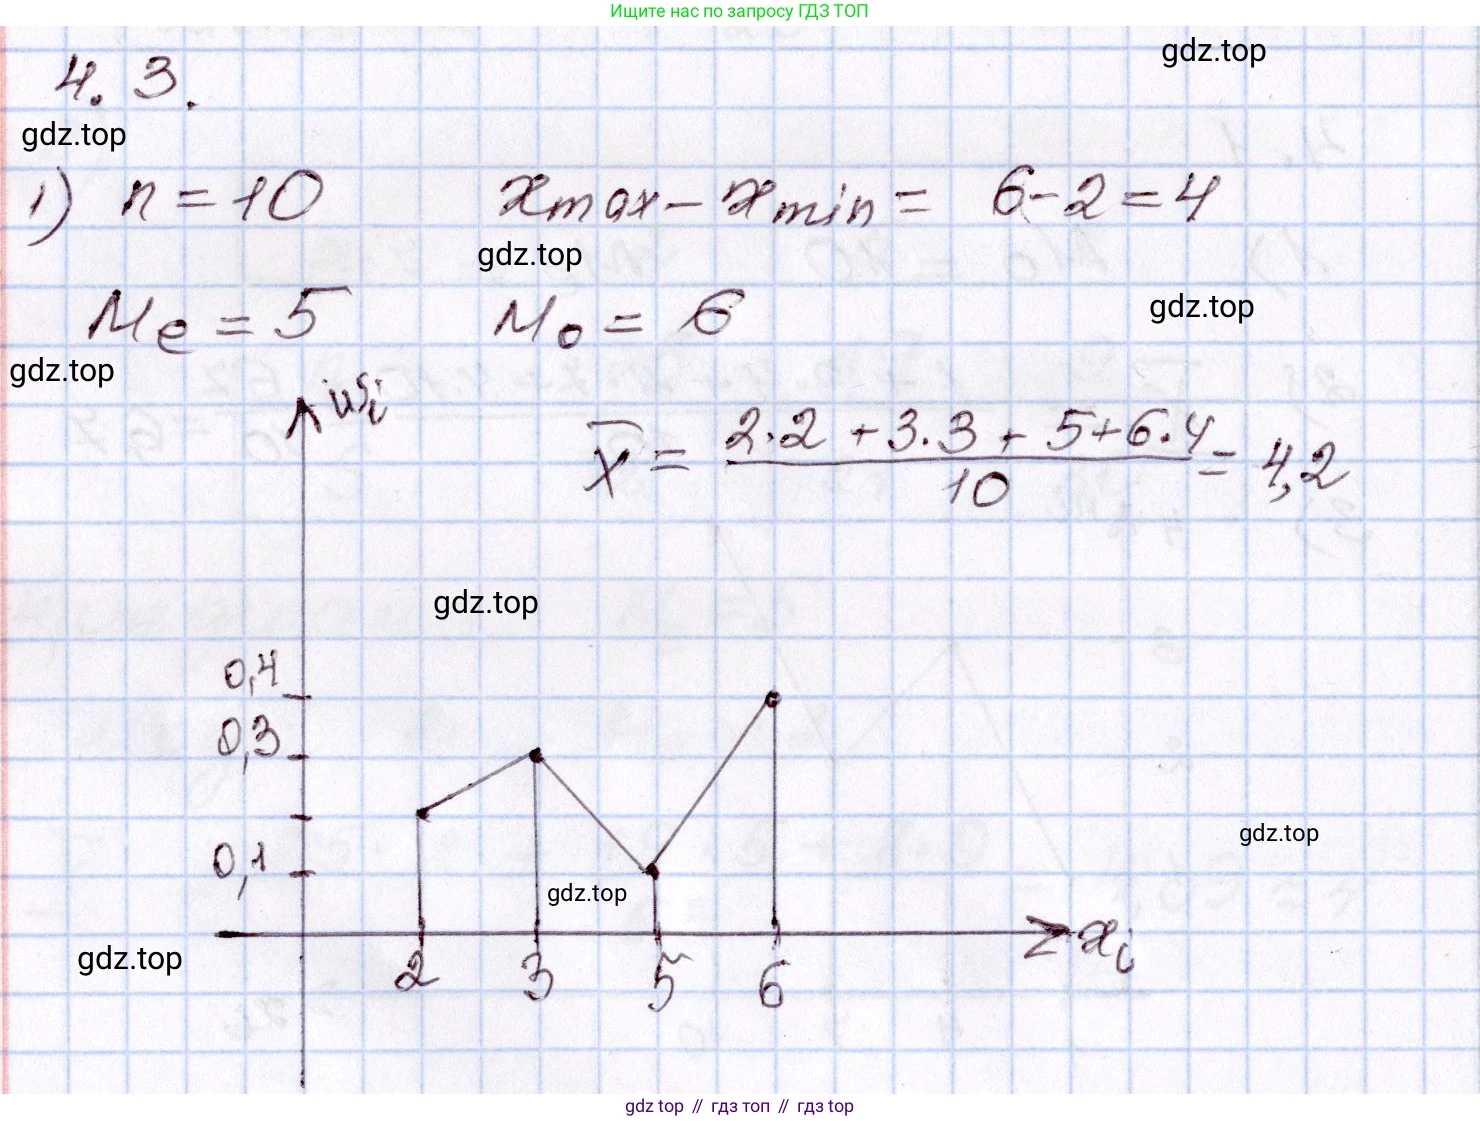 Ищите нас по запросу ГДЗ ТОП
gdz.top
4.3.
gdz.top
1) n = 10 xmax - xmin = 6 - 2 = 4
gdz.top
Me = 5 Mo = 6
gdz.top
gdz.top
ωi
x̄ = (2·2 + 3·3 + 5 + 6·4)/10 = 4,2
gdz.top
0,4
0,3
gdz.top
0,1
gdz.top
xi
gdz.top
2 3 5 6
gdz top // гдз топ // gdz top